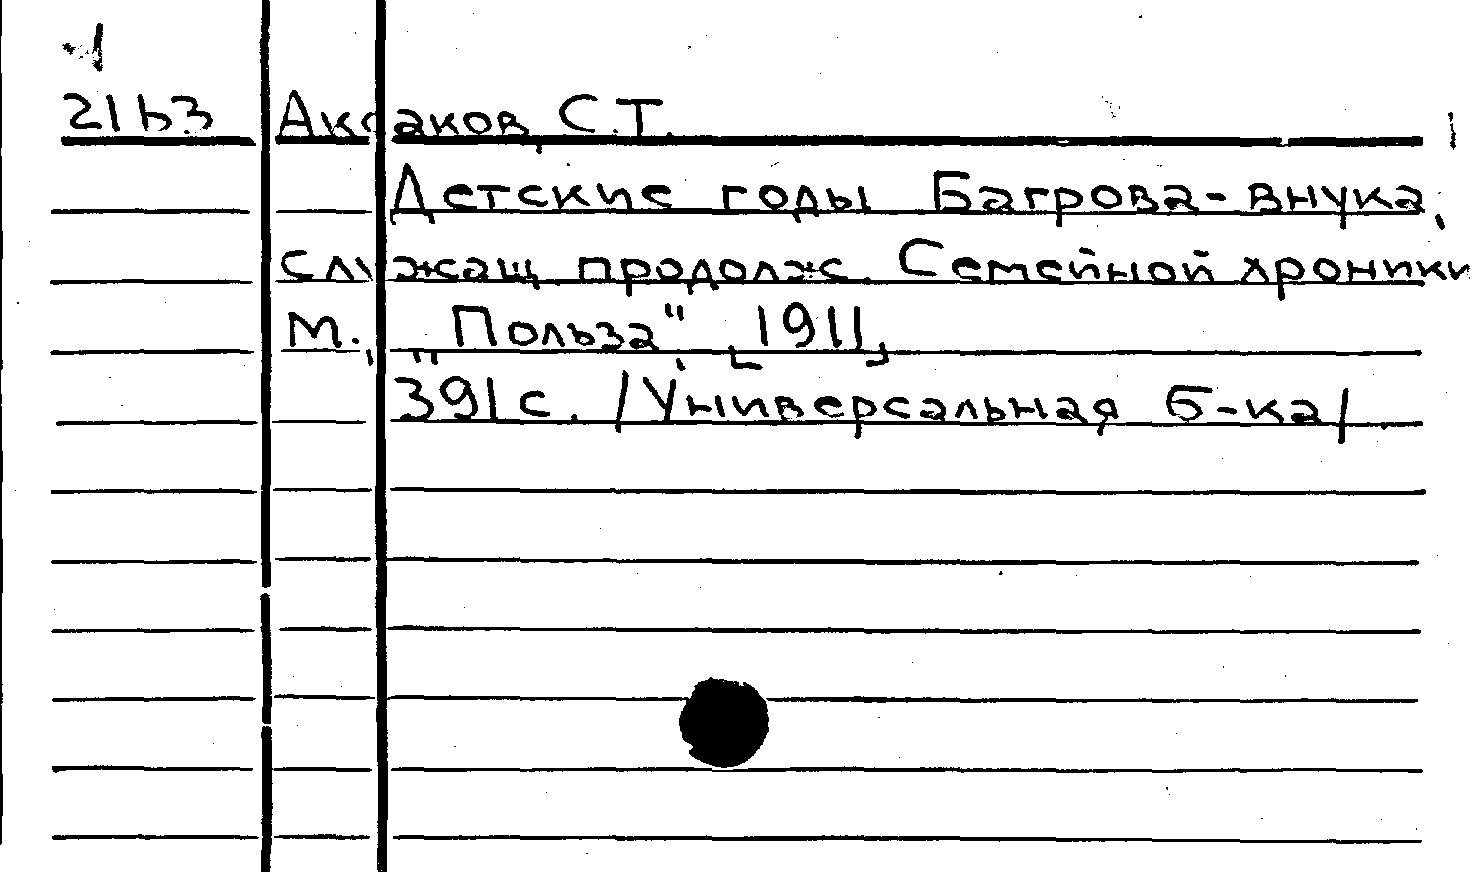 Аксаков, С.Т.
Детские годы Багрова-внука,
служащ. продолж. Семейной хроники
М., „Польза", [1911]
391 с. /Универсальная б-ка/